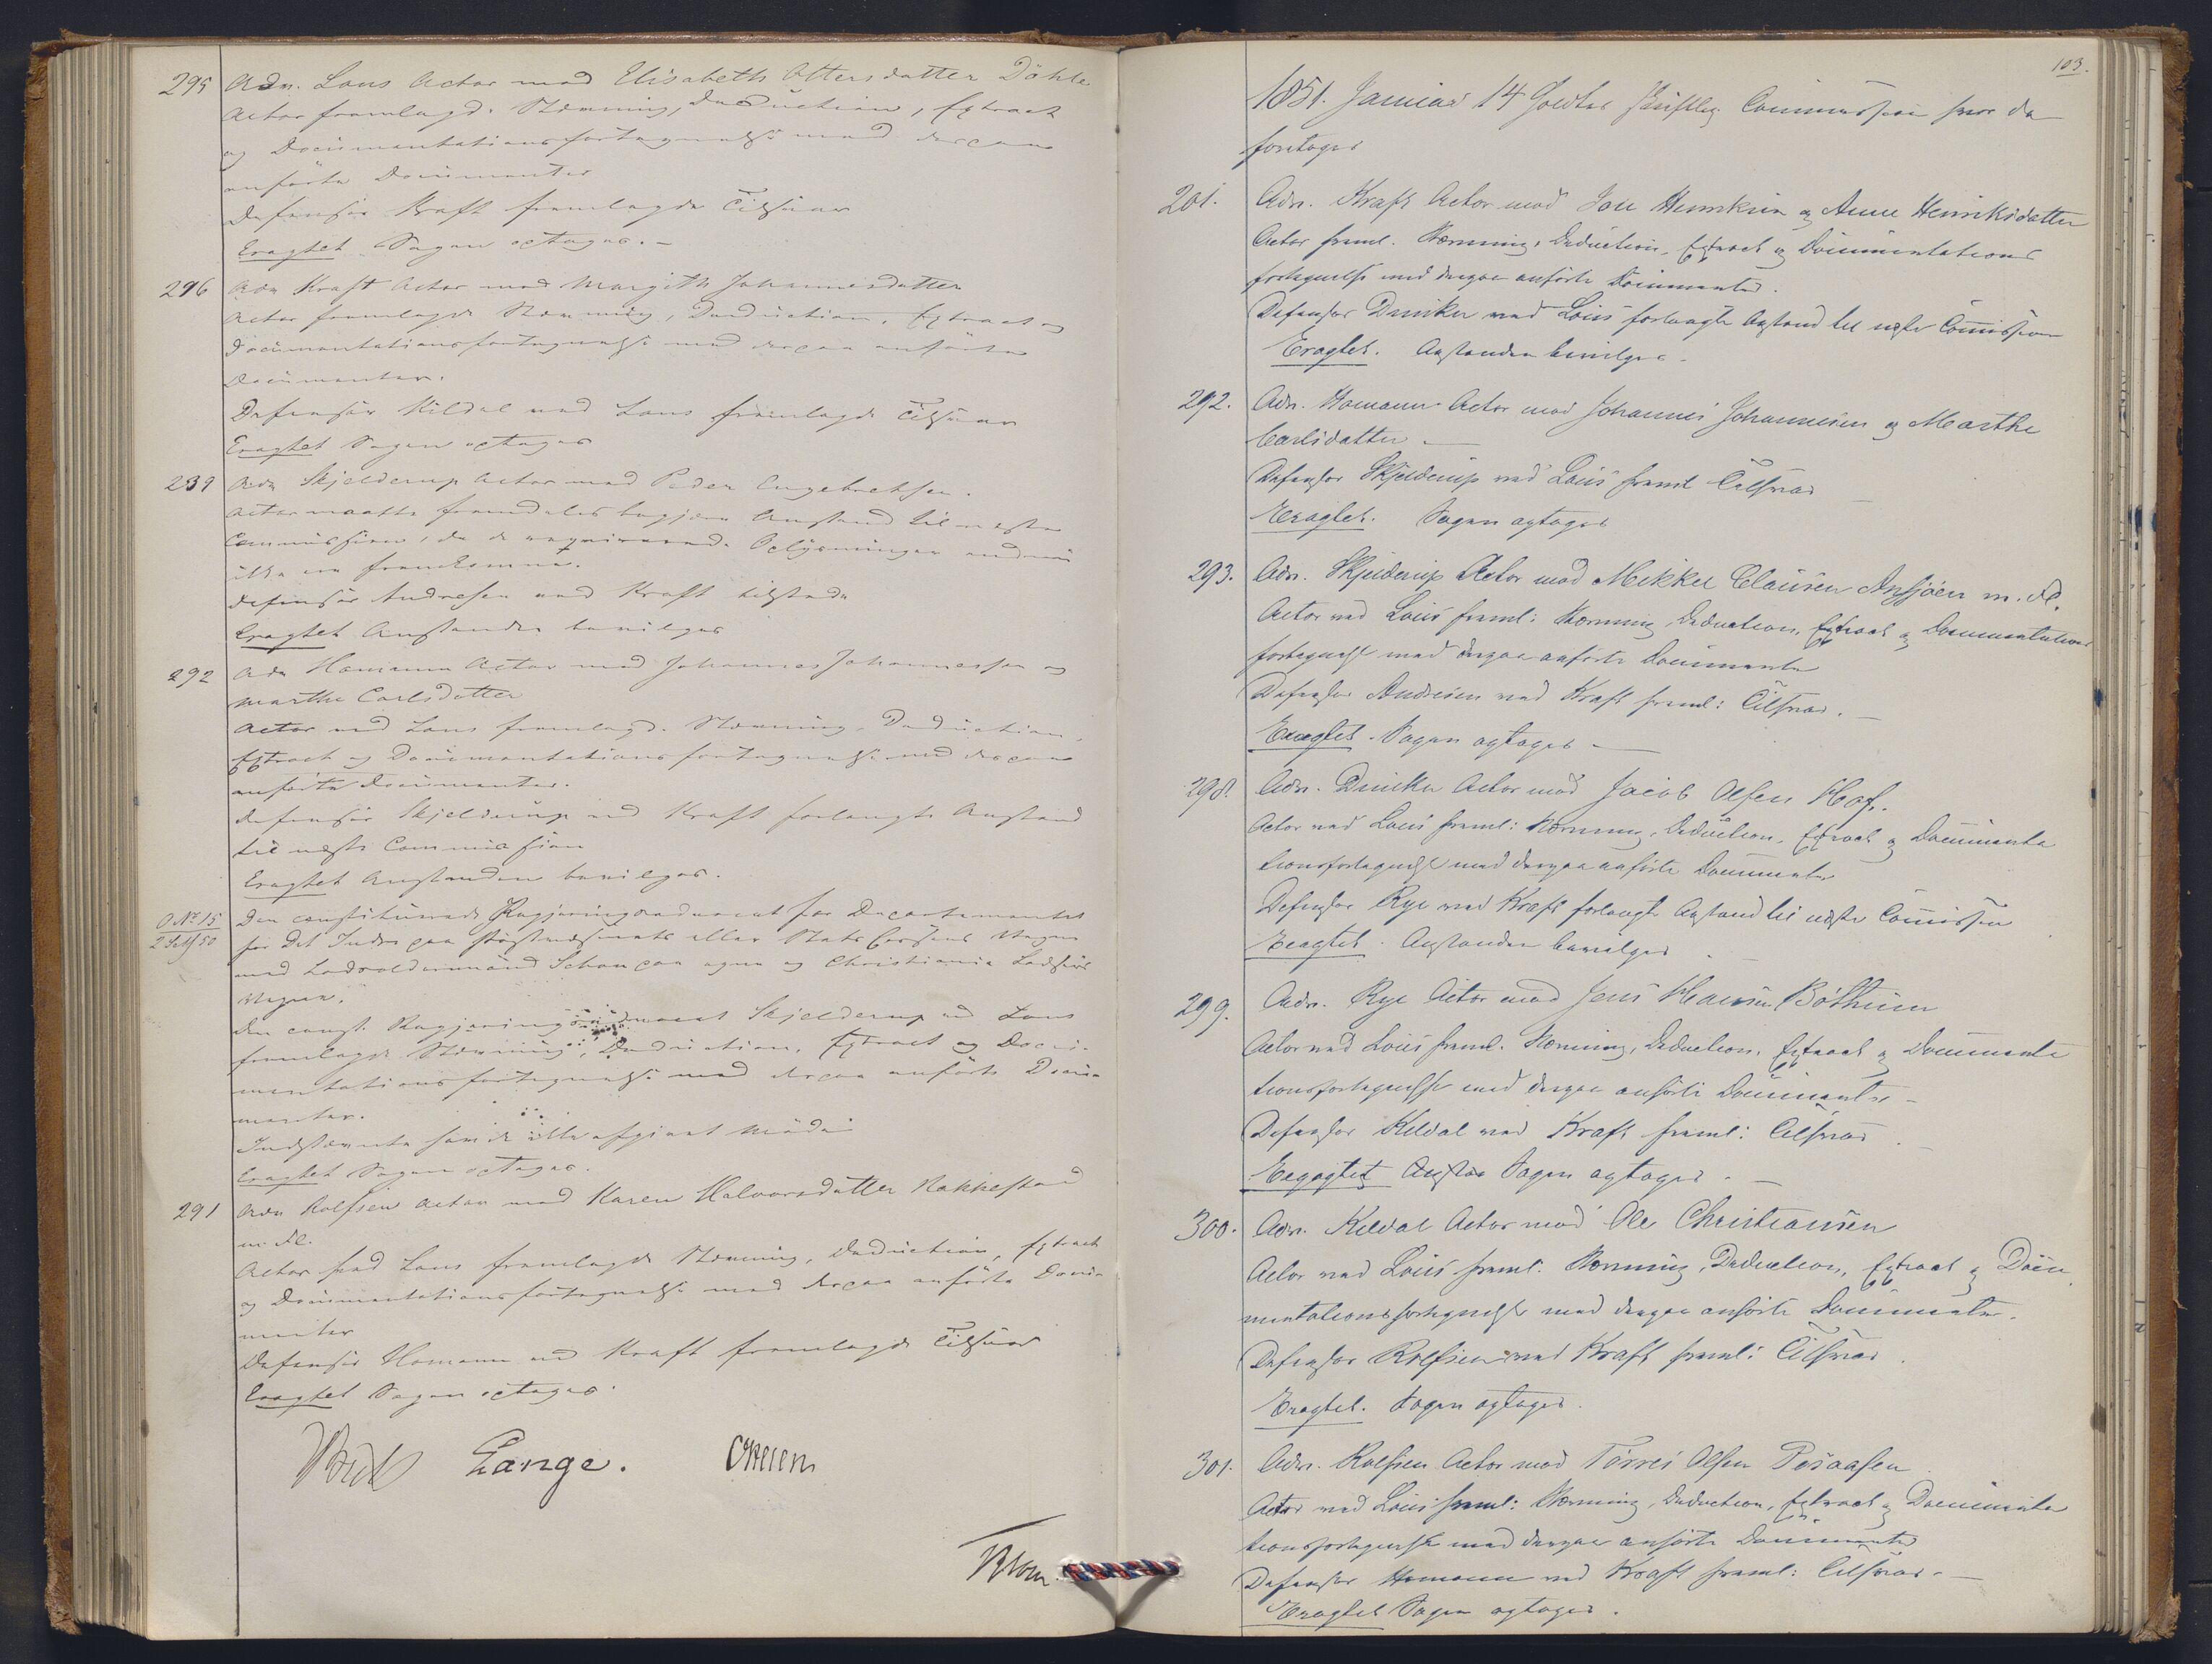 295 Adv. Lous Actor mod Elisabeth Ottersdatter Döhle
Actor fremlagde Stævning, Deduction, Extract
og Documentationsfortegnelse med derpaa
anførte Documenter
Defensor Kraft fremlagde Tilsvar
Eragtet Sagen optages. –
296 Adv Kraft Actor mod Margith Johannesdatter
Actor fremlagde Stævning, Deduction, Extract og
Documentationsfortegnelse med derpaa anførte
Documenter.
Defensor Kildal ved Lous fremlagde Tilsvar
Eragtet Sagen optages
239 Adv Skjelderup Actor mod Peder Engebretsen.
Actor maatte fremdeles begjere Anstand til næste
Commission, da de requirerede Oplysninger endnu
ikke ere fremkomne.
Defensor Andresen ved Kraft tilstede
Eragtet Anstanden bevilges
292 Adv Homann Actor mod Johannes Johannessen og
Marthe Carlsdatter
Actor ved Lous fremlagde Stævning, Deduction,
Extract og Documentationsfortegnelse med derpaa
anførte Documenter.
Defensor Skjelderup ved Kraft forlangte Anstand
til næste Commission
Eragtet Anstanden bevilges.
O No 15
2 Sess 50
Den constituerede Regjeringsadvocat for Departementet
for det Indre paa eller Stats Cassens Vegne
mod Schou paa egne og Christiania
Vegne.
Den const. Regjeringsadvocat Skjelderup ved Lous
fremlagde Stævning, Deduction, Extract og Docu-
mentationsfortegnelse med derpaa anførte Docu-
menter.
Indstævnte havde ikke afgivet Møde
Eragtet Sagen optages.
291 Adv Rolfsen Actor mod Karen Halvorsdatter Rakkestad
m. Fl.
Actor ved Lous fremlagde Stævning, Deduction, Extract
og Documentationsfortegnelse med derpaa anførte Docu-
menter
Defensor Homann ved Kraft fremlagde Tilsvar
Eragtet Sagen optages.
Lange.
103.
1851. Januar 14 holdtes Skriftlig Commission hvor da
foretoges
201. Adv. Kraft Actor mod Jon Henriksen og Anne Henriksdatter
Actor freml. Stævning, Deduction, Extract og Documentations
fortegnelse med derpaa anførte Documenter.
Defensor Duncker ved Lous forlangte Anstand til næste Comission
Eragtet. Anstanden bevilges –
292. Adv. Homann Actor mod Johannes Johannesen og Marthe
Carlsdatter –
Defensor Skjelderup ved Lous freml Tilsvar –
Eragtet. Sagen optages
293. Adv. Skjelderup Actor mod Mikkel Clausen m. Fl.
Actor ved Lous freml: Stævning, Deduction, Extract og Documentations
fortegnelse med derpaa anførte Documenter
Defensor Andresen ved Kraft freml: Tilsvar. –
Eragtet Sagen optages –
298. Adv. Duncker Actor mod Jacob Olsen Hof.
Actor ved Lous freml: Stævning, Deduction, Extract og Documenta
tionsfortegnelse med derpaa anførte Documenter
Defensor Rye ved Kraft forlangte Anstand til næste Comission
Eragtet. Anstanden bevilges.
299. Adv. Rye Actor mod Jens Hansen Böthun
Actor ved Lous freml. Stævning, Deduction, Extract og Documenta
tionsfortegnelse med derpaa anførte Documenter –
Defensor Kildal ved Kraft freml: Tilsvar.
Eragtet Sagen optages. –
300. Adv. Kildal Actor mod Ole Christiansen
Actor ved Lous freml: Stævning, Deduction, Extract og Docu
mentationsfortegnelse med derpaa anførte Documenter.
Defensor Rolfsen ved Kraft freml: Tilsvar.
Eragtet. Sagen optages.
301. Adv. Rolfsen Actor mod Törres Olsen
Actor ved Lous freml: Stævning, Deduction, Extract og Documenta
tionsfortegnelse med derpaa anførte Documenter
Defensor Homann ved Kraft freml: Tilsvar. –
Eragtet Sagen optages.